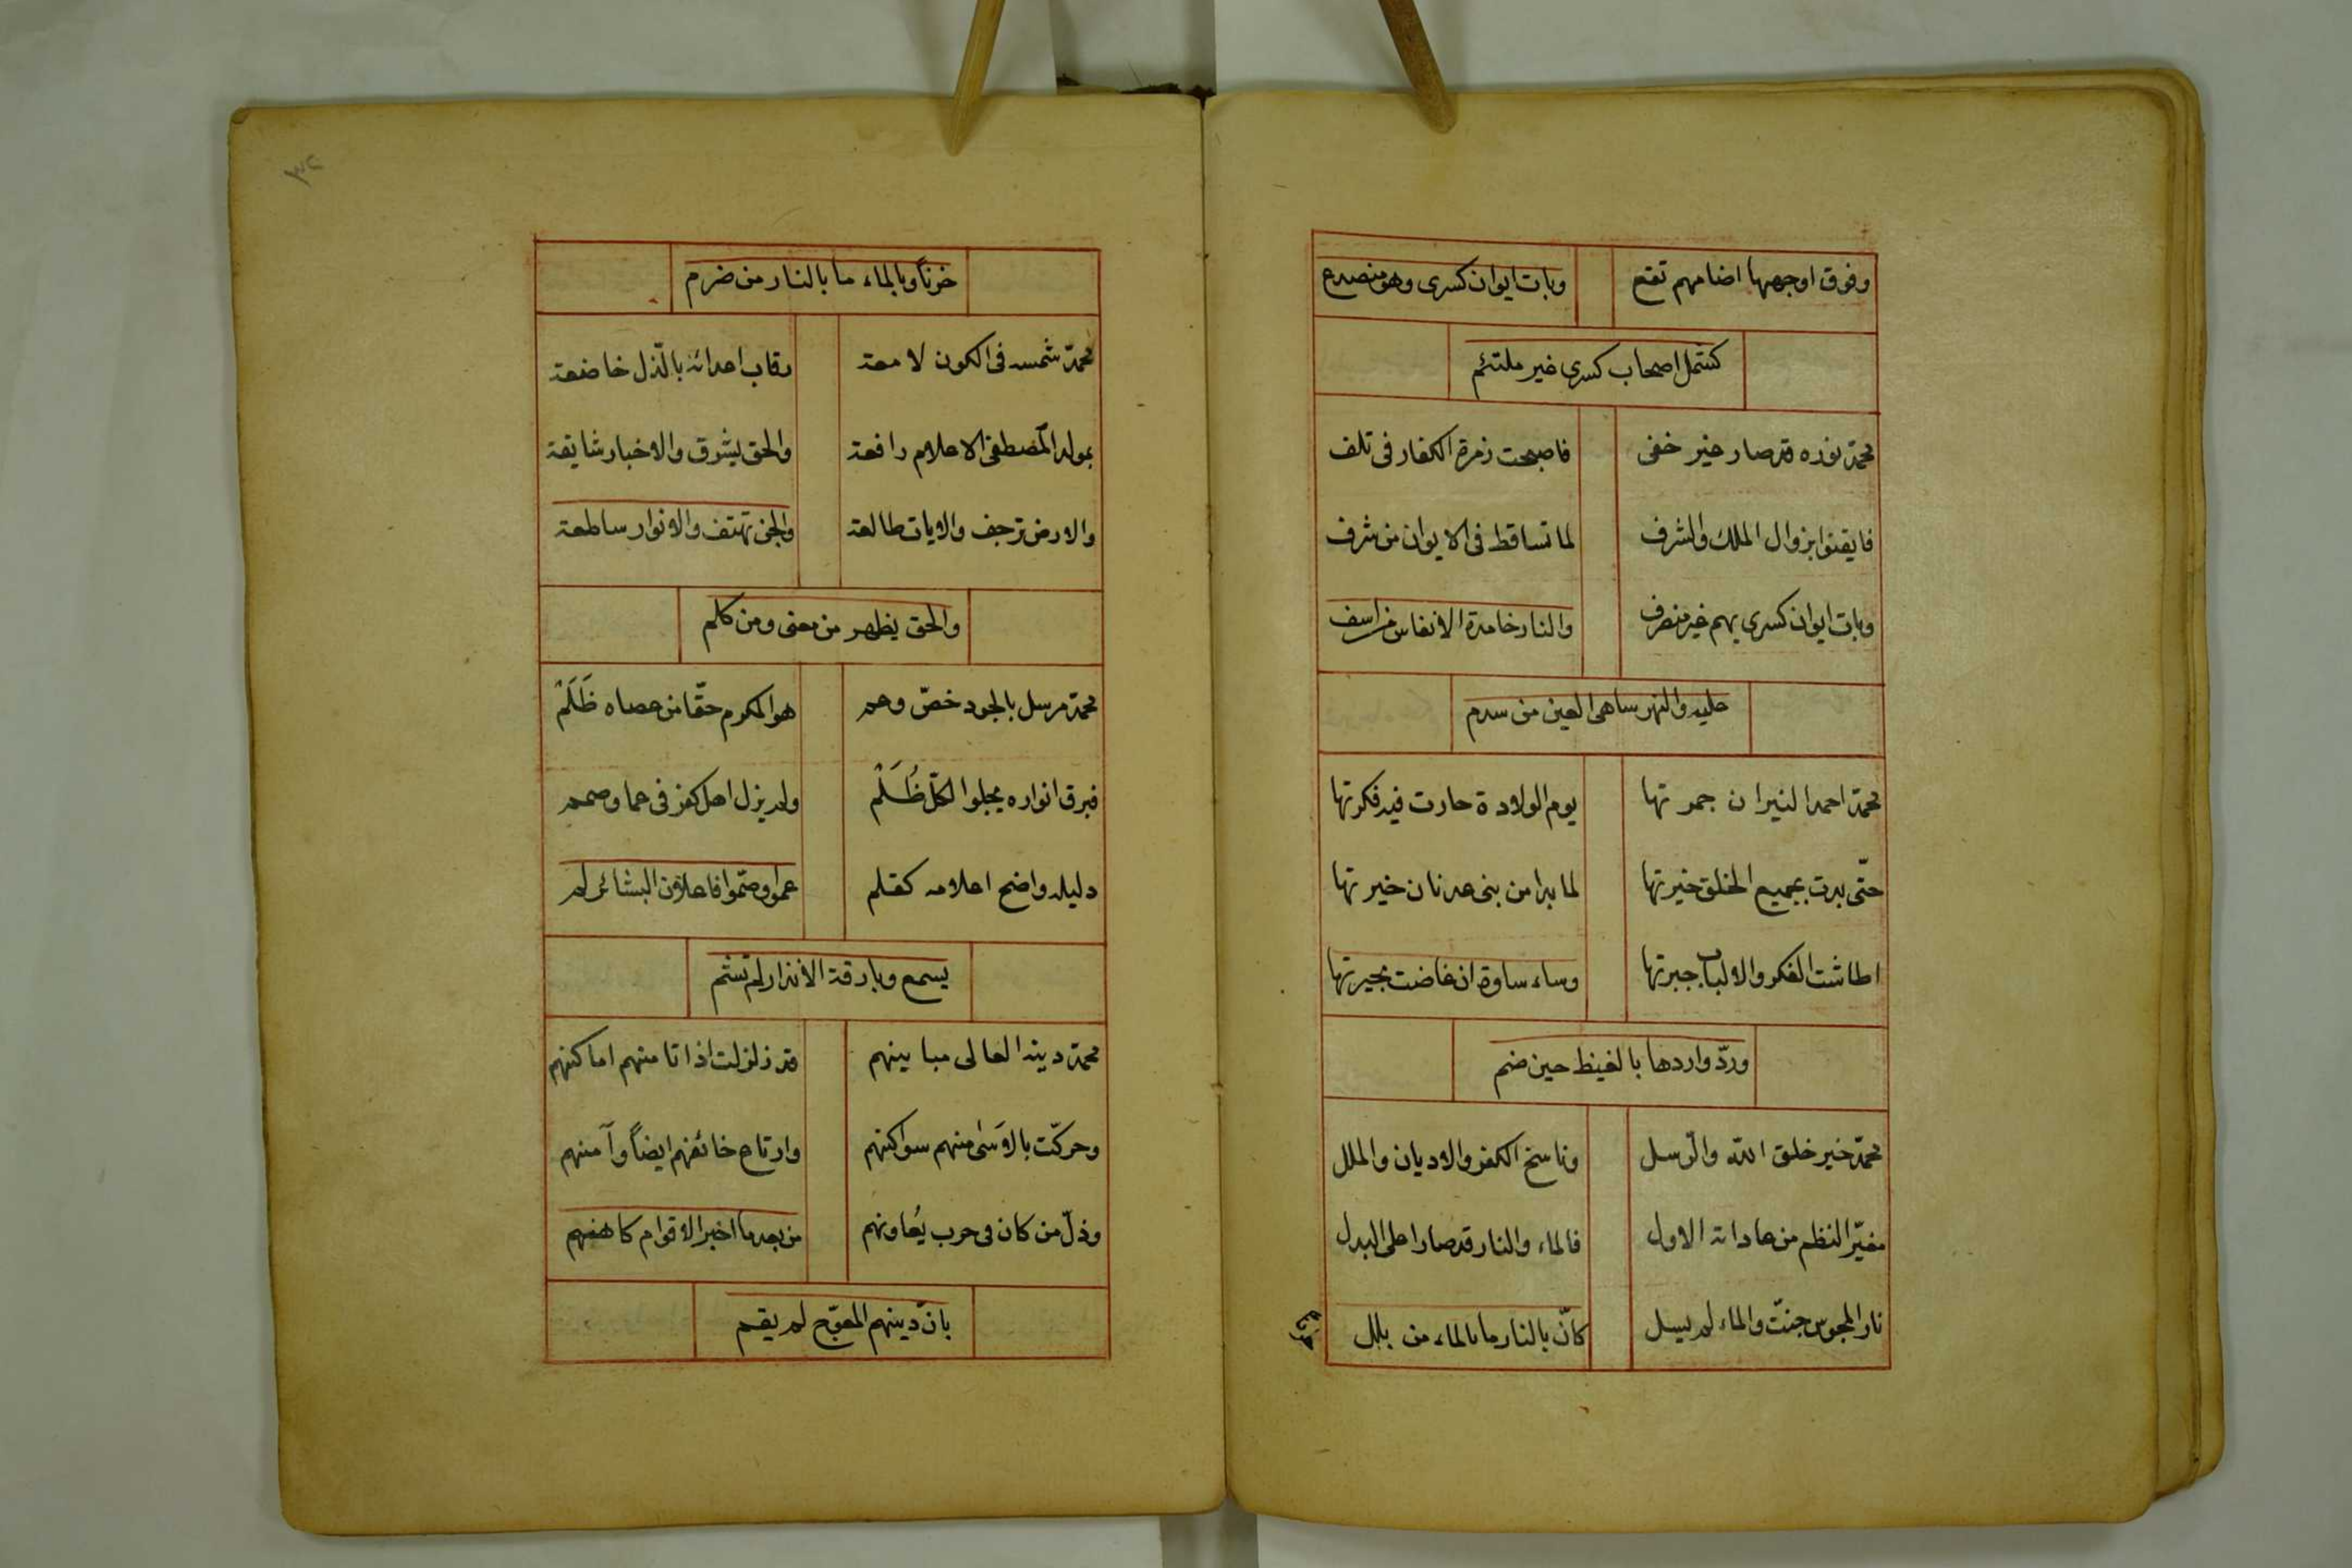 وفوق اوجهها اضامهم تقع وبات ايوان كسرى وهو منصدع
كشمل اصحاب كسرى غير ملتئم
محمّد نوره قد صار غير خفى فاصبحت زمرة الكفار فى تلف
فايقنوا بزوال الملك والشرف لما تساقط فى الايوان من شرف
وبات ايوان كسرى بهم غير منصرف والنار خامدة الانفاس من اسف
عليه والنهر ساهى العين من سدم
محمّد احمد النيران جمرتها يوم الولادة حارت فيه فكرتها
حتّى بدت بجميع الخلق خيرتها لما بدا من بنى عدنان خيرتها
اطاشت الفكر والالباب جبرتها وساء ساوة ان غاضت بحيرتها
وردّ واردها بالغيظ حين ضم
محمّد خير خلق الله والرّسل وناسخ الكفر والاديان والملل
مغيّر النظم من عاداته الاول فالماء والنار قد صارا على البدل
نار المجوس جنّت والماء لم يسل كانّ بالنار ما بالماء من بلل
حزنا
٣٢
حزناً وبالماء ما بالنار من ضرم
محمّد شمسه فى الكون لامعة رقاب اعدائه بالذّل خاضعة
بمولد المصطفى الاعلام رافعة والحق يشرق والاخبار شايعة
والارض ترجف والايات طالعة والجن تهتف والانوار ساطعة
والحق يظهر من معنى ومن كلم
محمّد مرسل بالجود خصّ وعم هو المكرم حقّا من عصاه ظَلَمْ
فبرق انواره يجلوا لكلّ ظُلَمْ ولم يزل اهل كفر فى عما وصمم
دليله واضح اعلامه كعلم عموا وصمّوا فاعلان البشائر لم
يسمع وبارقة الانذار لم تشم
محمّد دينه العالى مباينهم قد زلزلت اذ اتا منهم اماكنهم
وحركّت بالاَسَى منهم سواكنهم وارتاح خائفهم ايضاً وآمنهم
وذلّ من كان فى حرب يُعاونهم من بعد ما اخبر الاقوام كاهنهم
بانّ دينهم المعوّج لم يقم